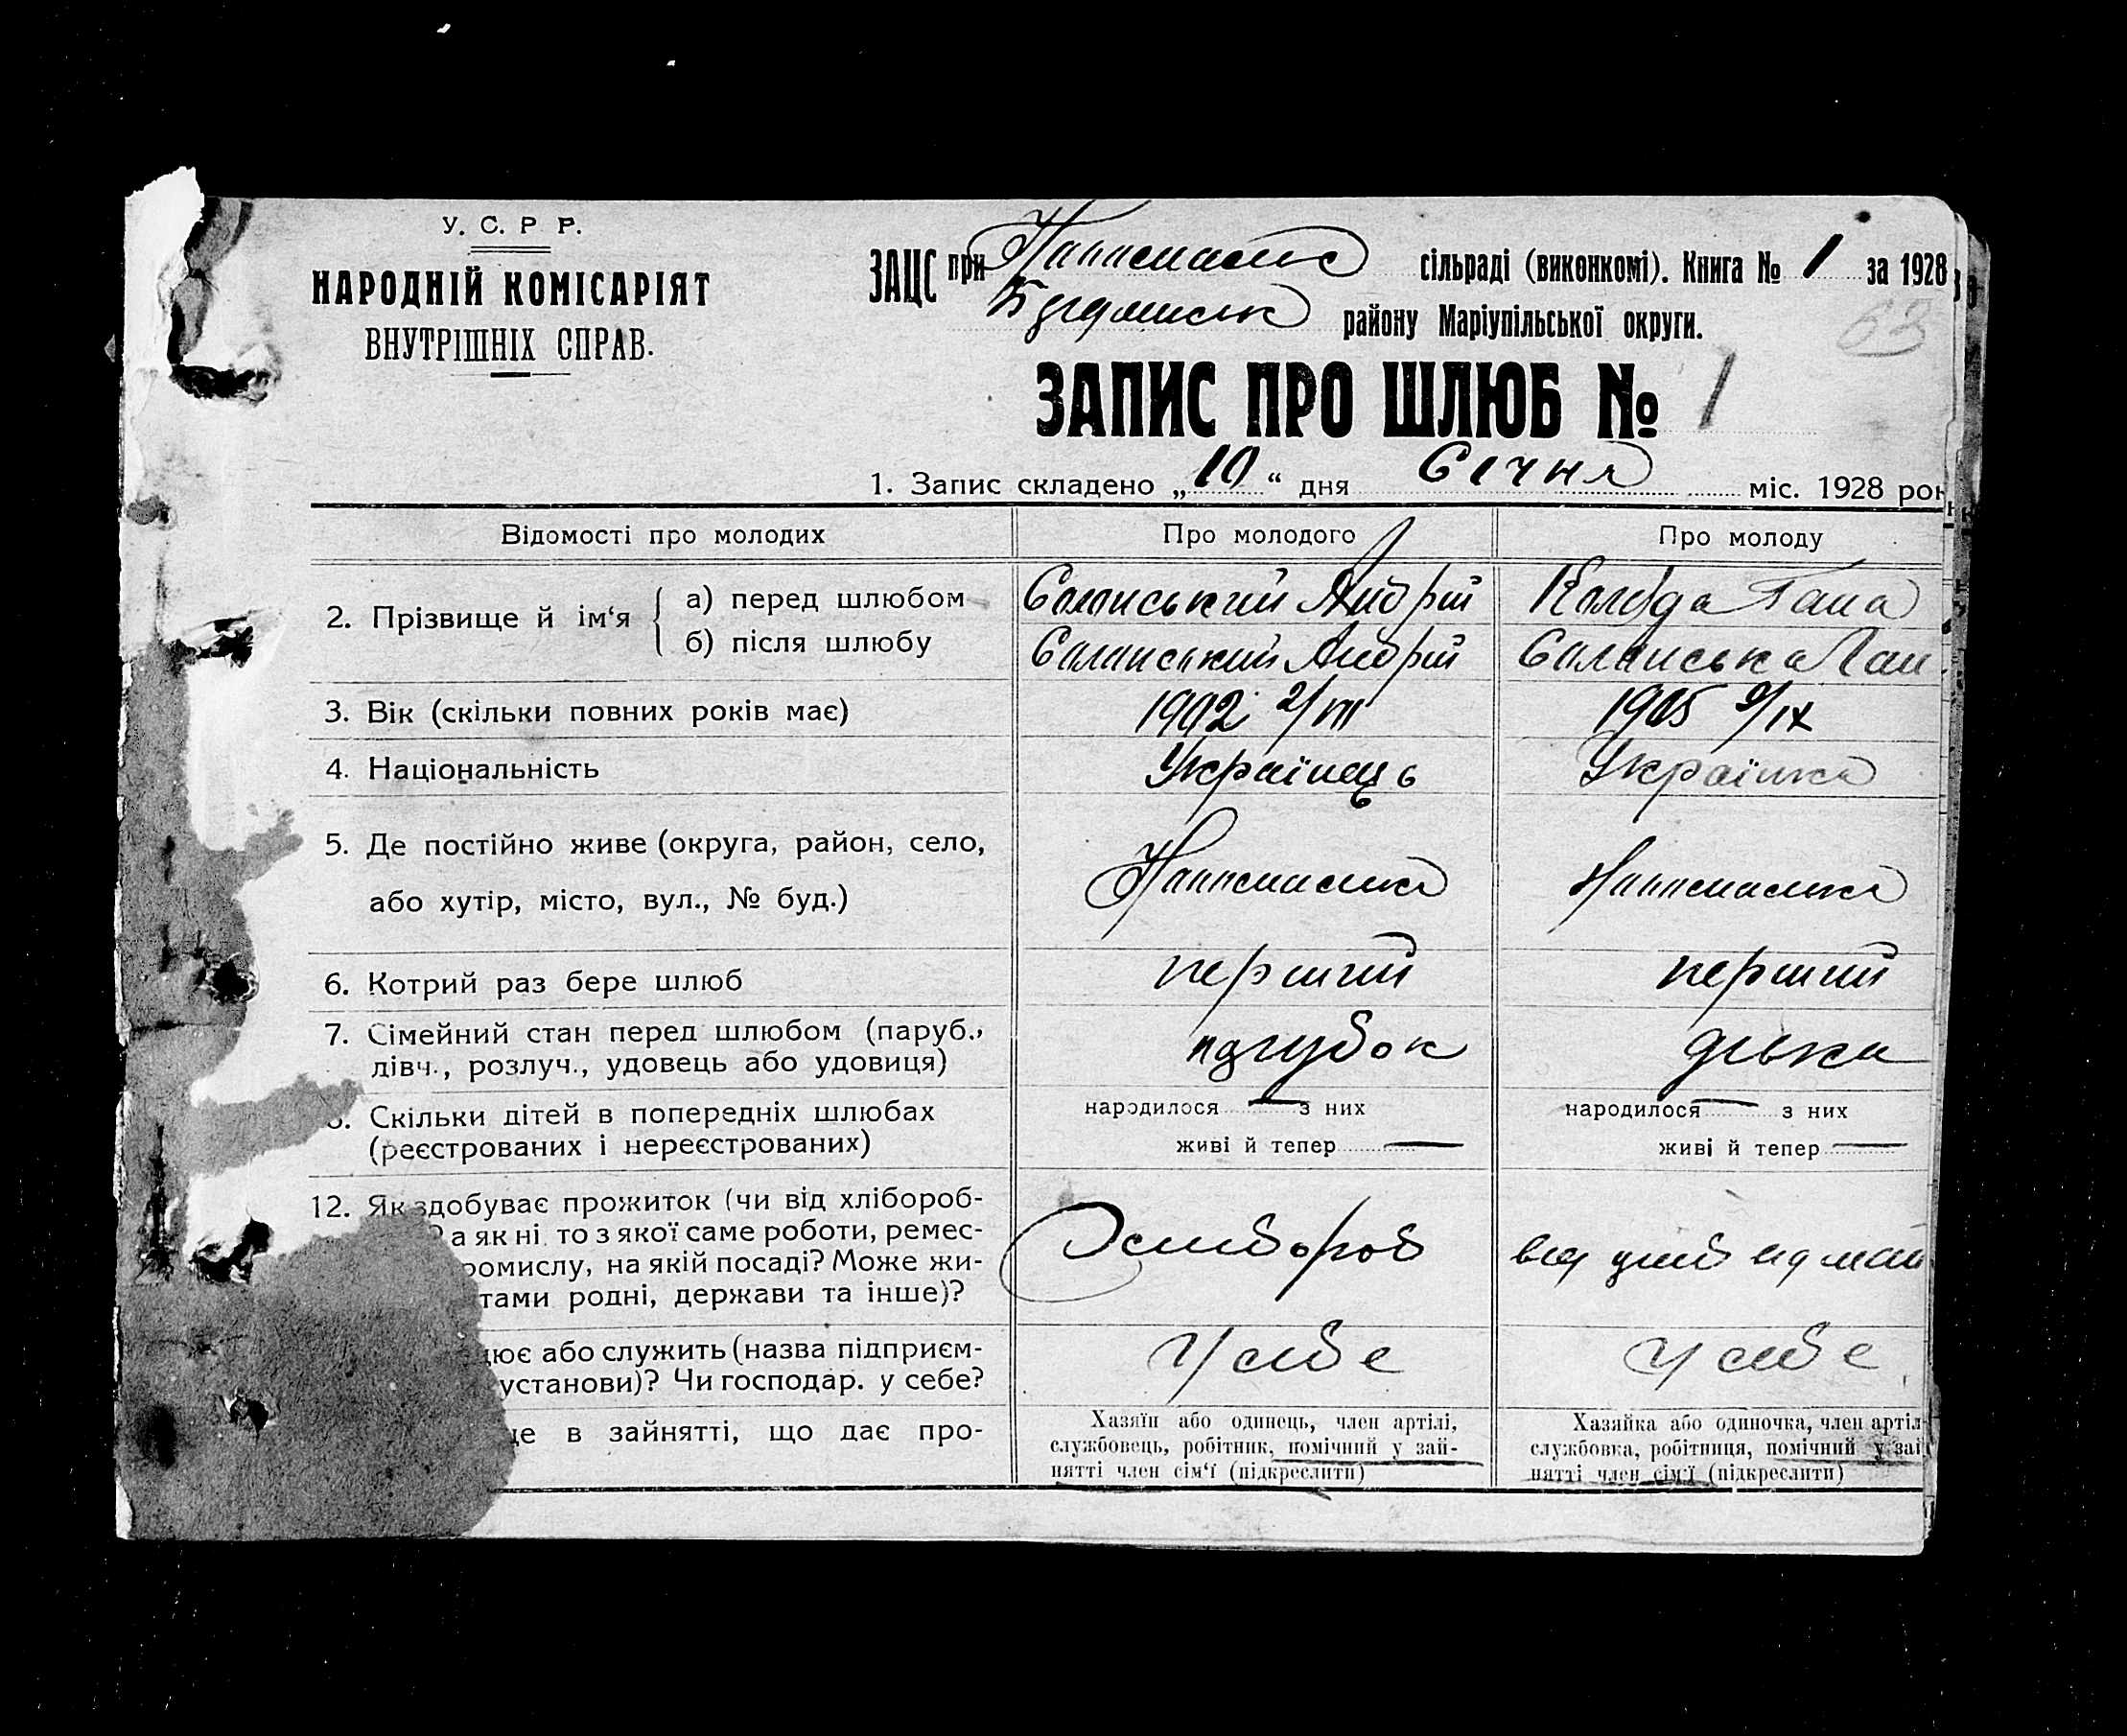 У. С. Р. Р.
НАРОДНІЙ КОМІСАРІЯТ
ВНУТРІШНІХ СПРАВ.
ЗАЦС при сільраді (виконкомі). Книга № 1 за 1928
району Маріупільської округи.
63
ЗАПИС ПРО ШЛЮБ № 1
1. Запис складено „10“ дня Січня міс. 1928 рок
Відомості про молодих Про молодого Про молоду
2. Прізвище й ім‘я { а) перед шлюбом Саланський Андрій Гана
б) після шлюбу Саланський Андрій Саланська Ган
3. Вік (скільки повних років має) 1902 2/VIII 1905 9/IX
4. Національність Українець Українка
5. Де постійно живе (округа, район, село,
або хутір, місто, вул., № буд.)
6. Котрий раз бере шлюб перший перший
7. Сімейний стан перед шлюбом (паруб.,
дівч., розлуч., удовець або удовиця) парубок дівка
8. Скільки дітей в попередніх шлюбах народилося — з них народилося — з них
(реєстрованих і нереєстрованих) живі й тепер — живі й тепер —
12. Як здобуває прожиток (чи від хлібороб-
? а як ні то з якої саме роботи, ремес- Хлібороб
ромислу, на якій посаді? Може жи-
тами родні, держави та інше)?
цює або служить (назва підприєм- У себе У себе
установи)? Чи господар. у себе?
Хазяїн або одинець, член артілі, Хазяйка або одиночка, член артіл
це в зайнятті, що дає про- службовець, робітник, помічний у зай- службовка, робітниця, помічний у зай
нятті член сім‘ї (підкреслити) нятті член сім‘ї (підкреслити)